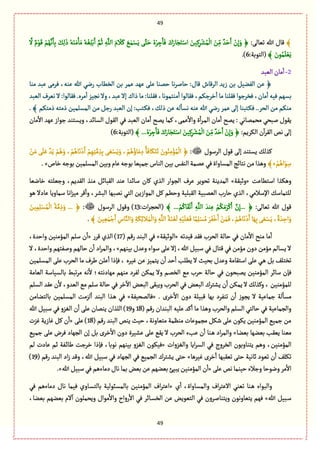 49
﴿ قال الله تعالى: ﴿ وَإِنْ أَحَدٌ مِّنَ الْمُشْرِكِينَ اسْتَجَارَكَ فَأَجِرْهُ حَتَّىٰ يَسْمَعَ كَلَامَ اللَّهِ ثُمَّ أَبْلِغْهُ مَأْمَنَهُ ذَٰلِكَ بِأَنَّهُمْ قَوْمٌ لَّا
يَعْلَمُونَ ﴾ (التوبة:6).
2-أمان العبد
﴿ عن الفضيل بن زيد الرقاشي قال: حاصرنا حصنا على عهد عمر بن الخطاب رضي الله عنه ، فرمى عبد منا
بسهم فيه أمان ، فخرجوا فقلنا ما أخرجكم ، فقالوا أمنتمونا ، فقلنا: ما ذاك إلا عبد ، ولا نجيز أمره. فقالوا: لا نعرف العبد
منكم من الحر.. فكتبنا إلى عمر رضي الله عنه نسأله عن ذلك ، فكتب: إن العبد رجل من المسلمين ذمته ذمتكم ﴾ .
يقول صبحي محمصاني : يصح أمان المرأة والأعمى ، كما يصح أمان العبد في القول السائد ، ويستند جواز عهد الأمان
إلى نص القرآن الكريم: ﴿ وَإِنْ أَحَدٌ مِّنَ الْمُشْرِكِينَ اسْتَجَارَكَ فَأَجِرْهُ... ﴾ (التوبة:6)
كذلك يستند إلى قول الرسول ﷺ: «الْمُؤْمِنُونَ تَتَكَافَأُ دِمَاؤُهُمْ ، وَيَسْعَى بِذِمَّتِهِمْ أَدْنَاهُمْ وَهُمْ يَدٌ عَلَى مَنْ
سِوَاهُمْ» وهذا من نتائج المساواة في عصمة النفس بين الناس جميعا بوجه عام وبين المسلمين بوجه خاص» .
وهكذا استطاعت «وثيقة» المدينة تحوير عرف الجوار الذي كان سائدا عند القبائل منذ القديم ، وجعلته خاضعا
للتماسك الإسلامي ، الذي حارب العصبية القبلية وحطم كل الموازين التي نصبها البشر ، وأقر ميزانا سماويا عادلا هو
قول الله تعالى: ﴿... إِنَّ أَكْرَمَكُمْ عِندَ اللَّهِ أَتْقَاكُمْ... ﴾ (الحجرات:13) وقول الرسول ﷺ: «... ذِمَّةُ الْمُسْلِمِينَ
وَاحِدَةٌ ، يَسْعَى بِهَا أَدْنَاهُمْ ، فَمَنْ أَخْفَرَ مُسْلِمًا فَعَلَيْهِ لَعْنَةُ اللَّهِ وَالْمَلَائِكَةِ وَالنَّاسِ أَجْمَعِينَ ﴾ .
أما منح الأمان في حالة الحرب فقد قيدته «الوثيقة» في البند رقم (17) الذي قرر «أن سلم المؤمنين واحدة ،
لا يسالم مؤمن دون مؤمن في قتال في سبيل الله ، إلا على سواء وعدل بينهم» ، والمراد أن حالهم وصفتهم واحدة ، لا
تختلف بل هي على استقامة وعدل بحيث لا يطلب أحد أن يتميز عن غيره ، فإذا أعلن طرف ما الحرب على المسلمين
فإن سائر المؤمنين يصبحون في حالة حرب مع الخصم ولا يمكن لفرد منهم مهادنته ؛ لأنه مرتبط بالسياسة العامة
للمؤمنين ، وكذلك لا يمكن أن يشترك البعض في الحرب ويبقى البعض الآخر في حالة سلم مع العدو ، لأن عقد السلم
مسألة جماعية لا يجوز أن تنفرد بها قبيلة دون الأخرى . «فالصحيفة» في هذا البند ألزمت المسلمين بالتضامن
والجماعية في حالتي السلم والحرب وهذا ما أكد عليه البندان رقم (18) و(19) اللذان ينصان على أن الغزو في سبيل الله
من جميع المؤمنين يكون على شكل مجموعات منظمة متعاونة ، حيث ينص البند رقم (18) على «أن كل غازية غزت
معنا يعقب بعضها بعضا» والمراد هنا أن عبء الحرب لا يقع على عشيرة دون الأخرى بل إن الجهاد فرض على جميع
المؤمنين ، وهم يتناوبون الخروج في السرايا والغزوات «فيكون الغزو بينهم نوبا ، فإذا خرجت طائفة ثم عادت لم
تكلف أن تعود ثانية حتى تعقبها أخرى غيرها» حتى يشترك الجميع في الجهاد في سبيل الله ، وقد زاد البند رقم (19)
الأمر وضوحا وجلاء حينما نص على «أن المؤمنين يبيئ بعضهم عن بعض بما نال دماءهم في سبيل الله».
والبواء هنا تعني الاعتراف والمساواة ، أي «اعتراف المؤمنين بالمسئولية بالتساوي فيما نال دماءهم في
سبيل الله» فهم يتعاونون ويتناصرون في التعويض عن الخسائر في الأرواح والأموال ويحملون آلام بعضهم بعضا ،
49